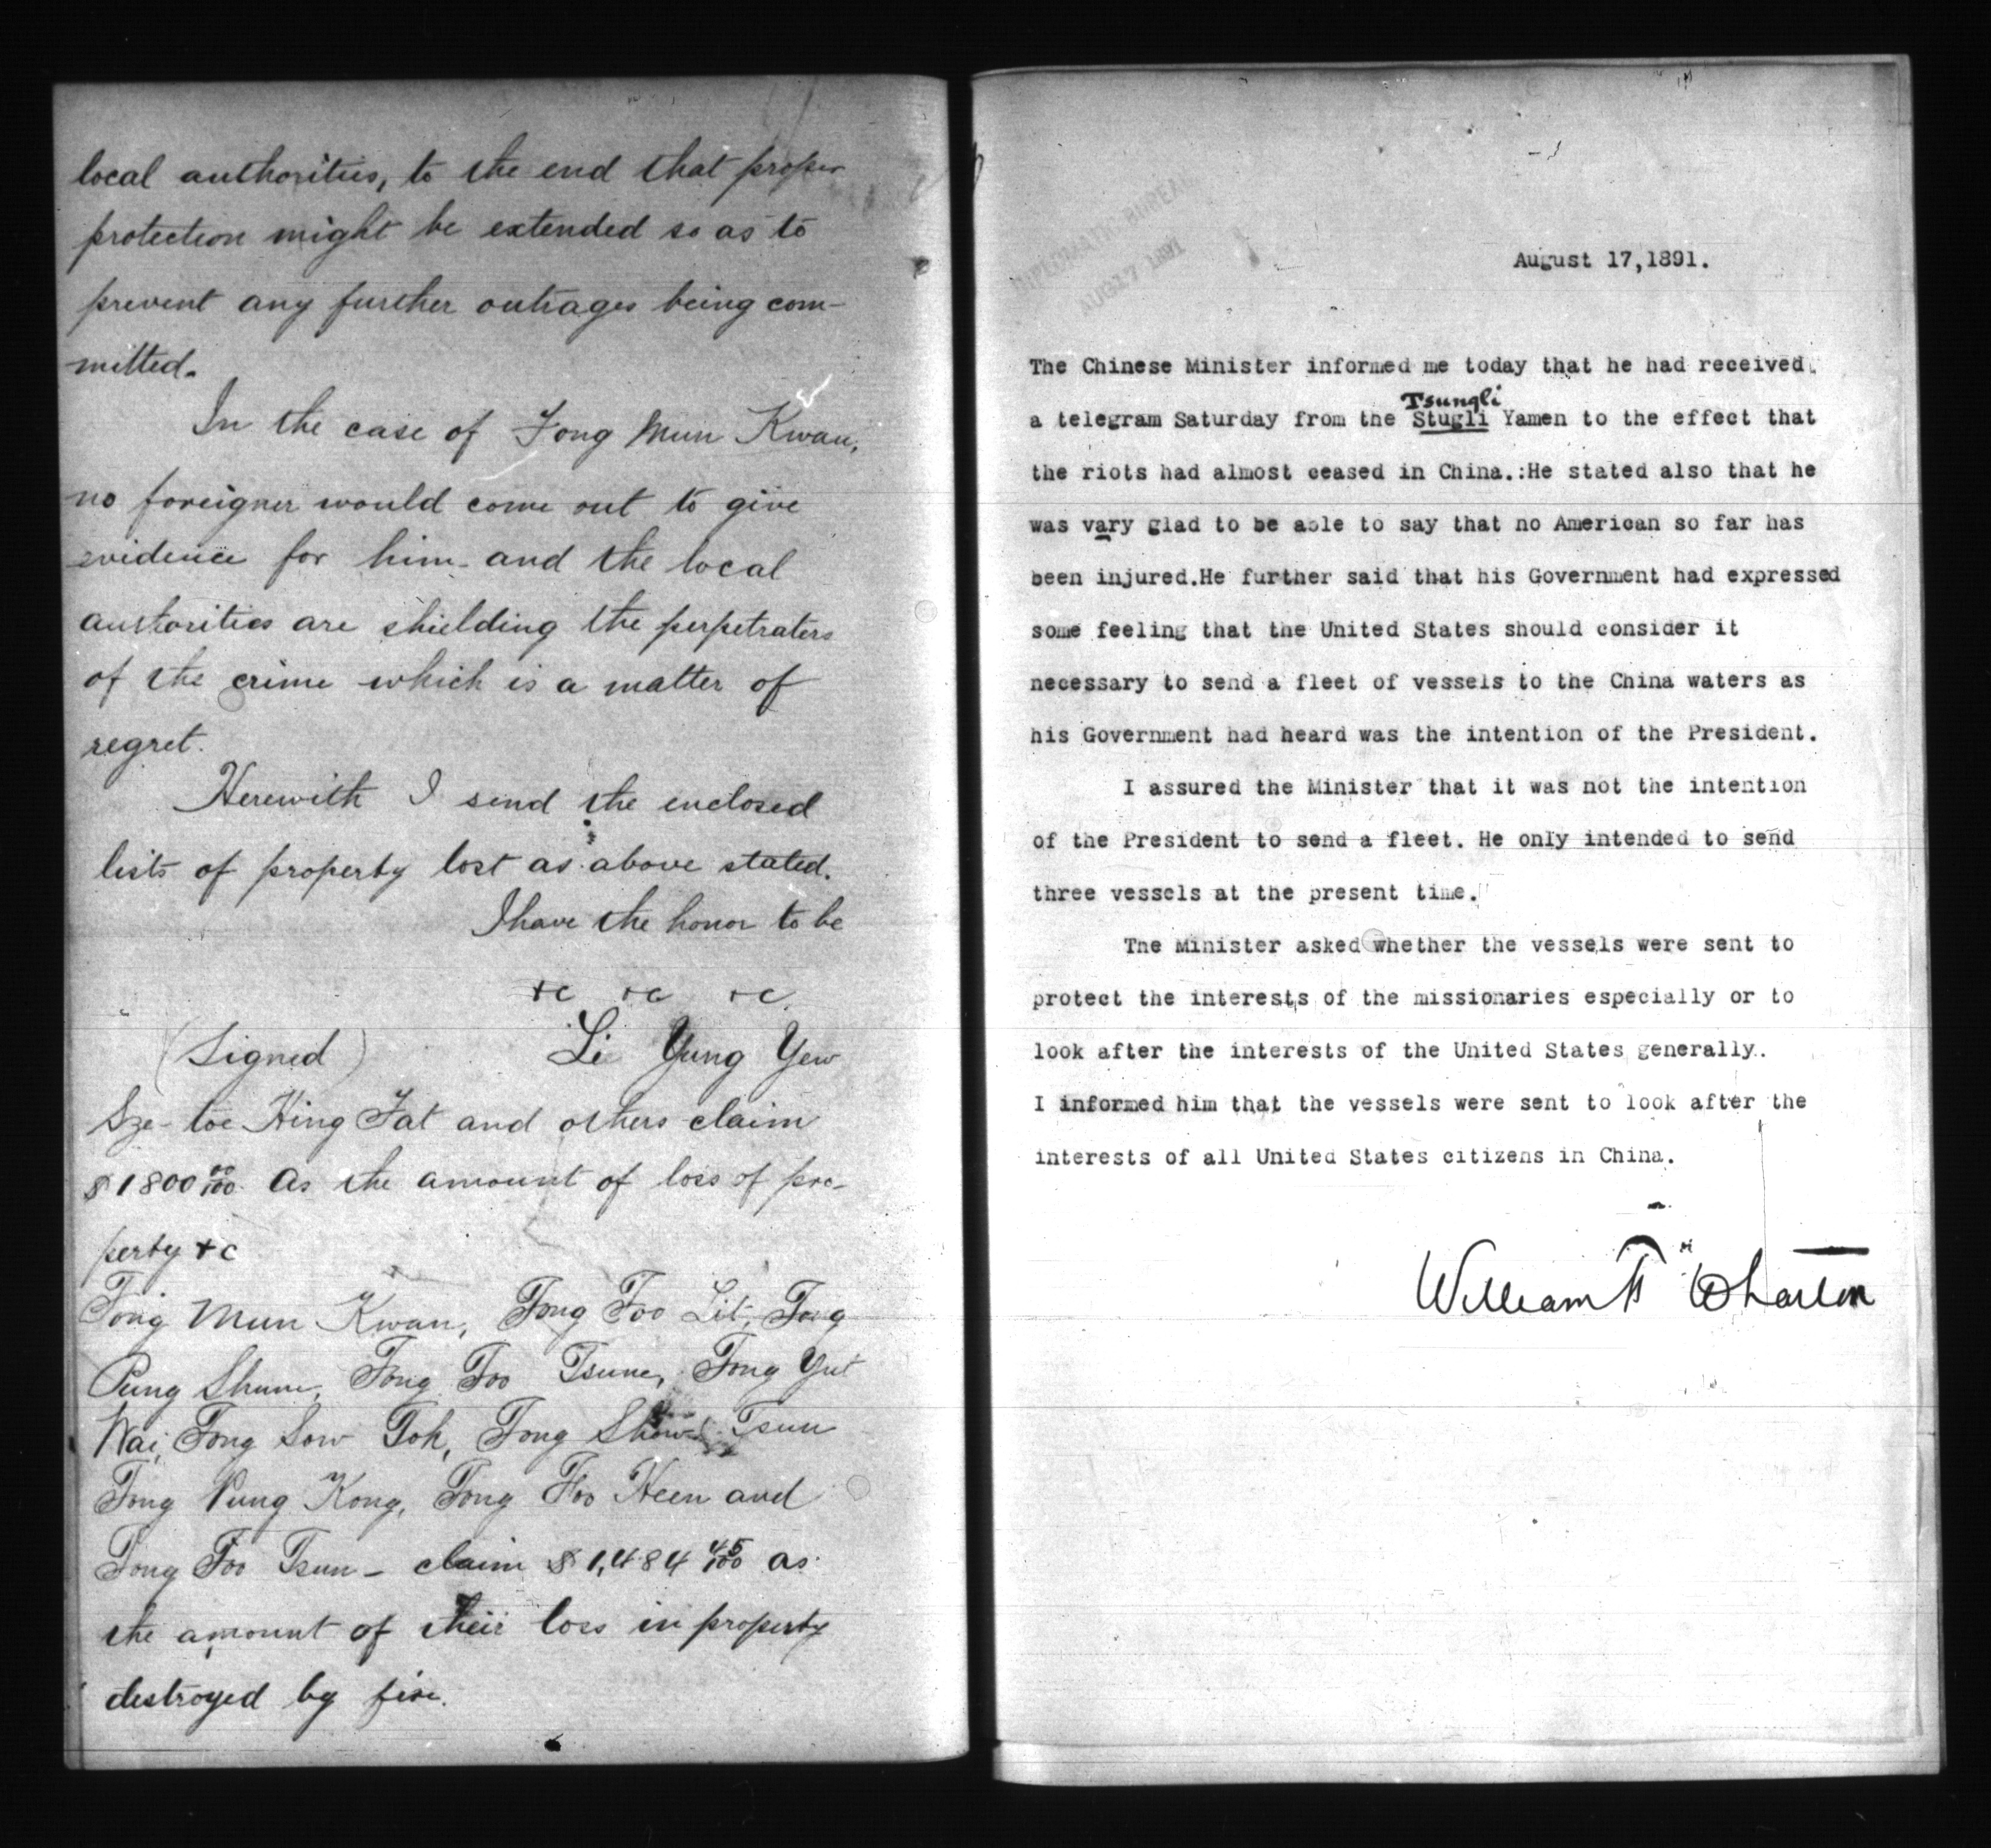 local authorities, to the end that proper
protection might be extended so as to
prevent any further outrages being com-
mitted.
In the case of Fong Mun Kwan,
no foreigner would come out to give
evidence for him and the local
authorities are shielding the perpetraters
of the crime which is a matter of
regret.
Herewith I send the enclosed
lists of property lost as above stated.
I have the honor to be
&c &c &c
(Signed) Li Yung Yew
Sze-toe King Fat and others claim
$1800 00/100 as the amount of loss of pro-
perty &c
Fong Mun Kwan, Fong Foo Lit, Fong
Pung Shum, Fong Foo Tsune, Fong Yut
Wai, Fong Sow Toh, Fong Show Tsun
Fong Pung Kong, Fong Foo Heen and
Fong Foo Tsun - claim $1,484 45/100 as
the amount of their loss in property
destroyed by fire.
DIPLOMATIC BUREAU
AUG 17 1891
August 17,1891.
The Chinese Minister informed me today that he had received
Tsungli
a telegram Saturday from the Stugli Yamen to the effect that
the riots had almost ceased in China.:He stated also that he
was vary glad to be able to say that no American so far has
been injured.He further said that his Government had expressed
some feeling that the United States should consider it
necessary to send a fleet of vessels to the China waters as
his Government had heard was the intention of the President.
I assured the Minister that it was not the intention
of the President to send a fleet. He only intended to send
three vessels at the present time.
The Minister asked whether the vessels were sent to
protect the interests of the missionaries especially or to
look after the interests of the United States generally.
I informed him that the vessels were sent to look after the
interests of all United States citizens in China.
William F Wharton